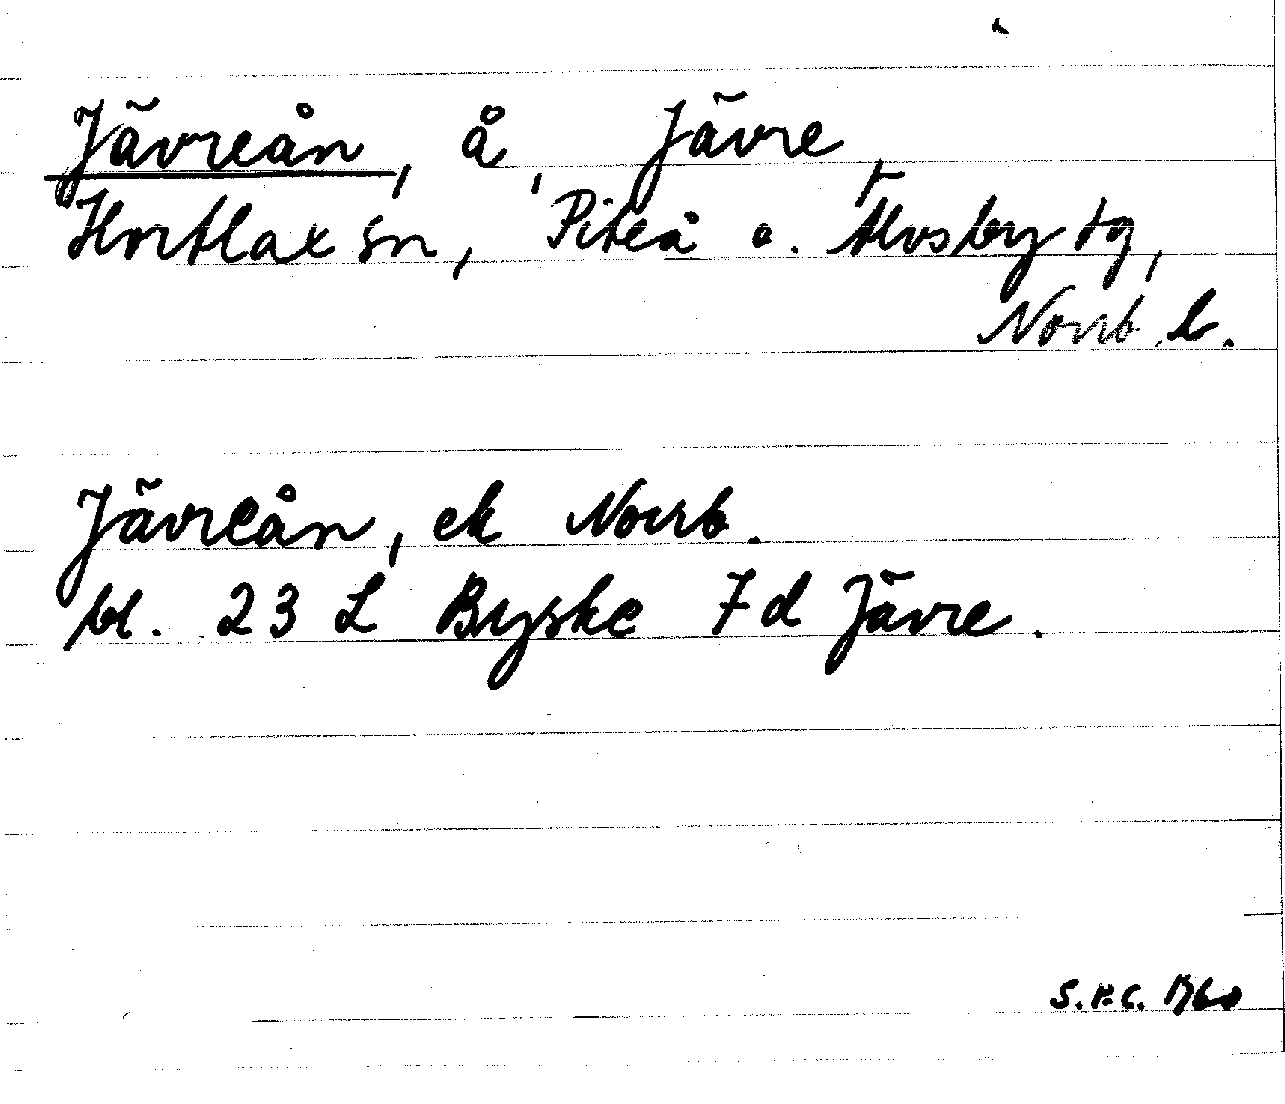 Jävreån, å, Jävre,
Hortlax sn, Piteå o. Älvsby tg,
Norrb. l.
Jävreån, ek Norrb.
bl. 23 L Byske 7d Jävre.